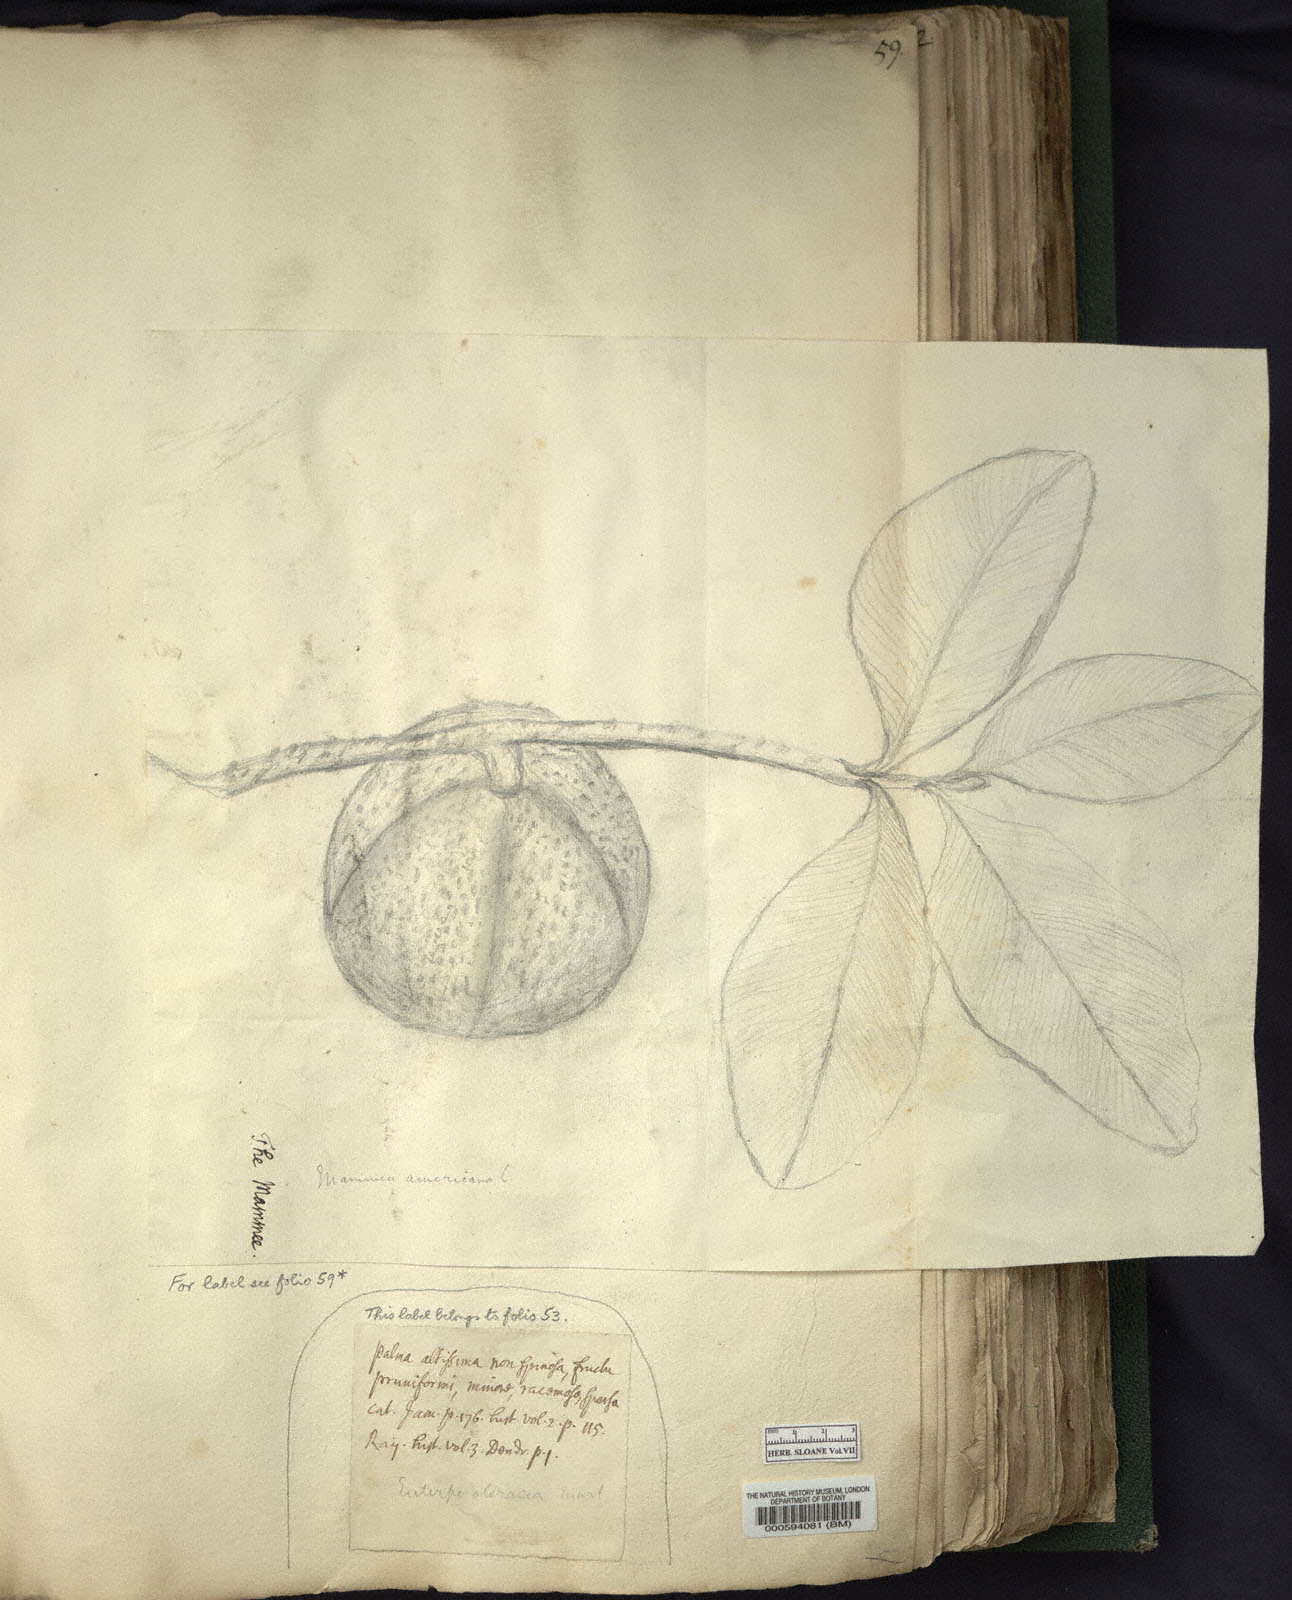 59.
2
The Mammee.
Mammea americana L
For label see folio 59*
This label belongs to folio 53.
Palma altissima non spinosa, fructu
pruniformi, minore, racemoso, sparso
cat. Jam. p. 176. hist. vol. 2. p. 115.
Ray. hist. vol. 3. Dendr. p. 1.
Euterpe oleracea Mart
1 2 3
HERB. SLOANE Vol. VII
THE NATURAL HISTORY MUSEUM, LONDON
DEPARTMENT OF BOTANY
000594081 (BM)